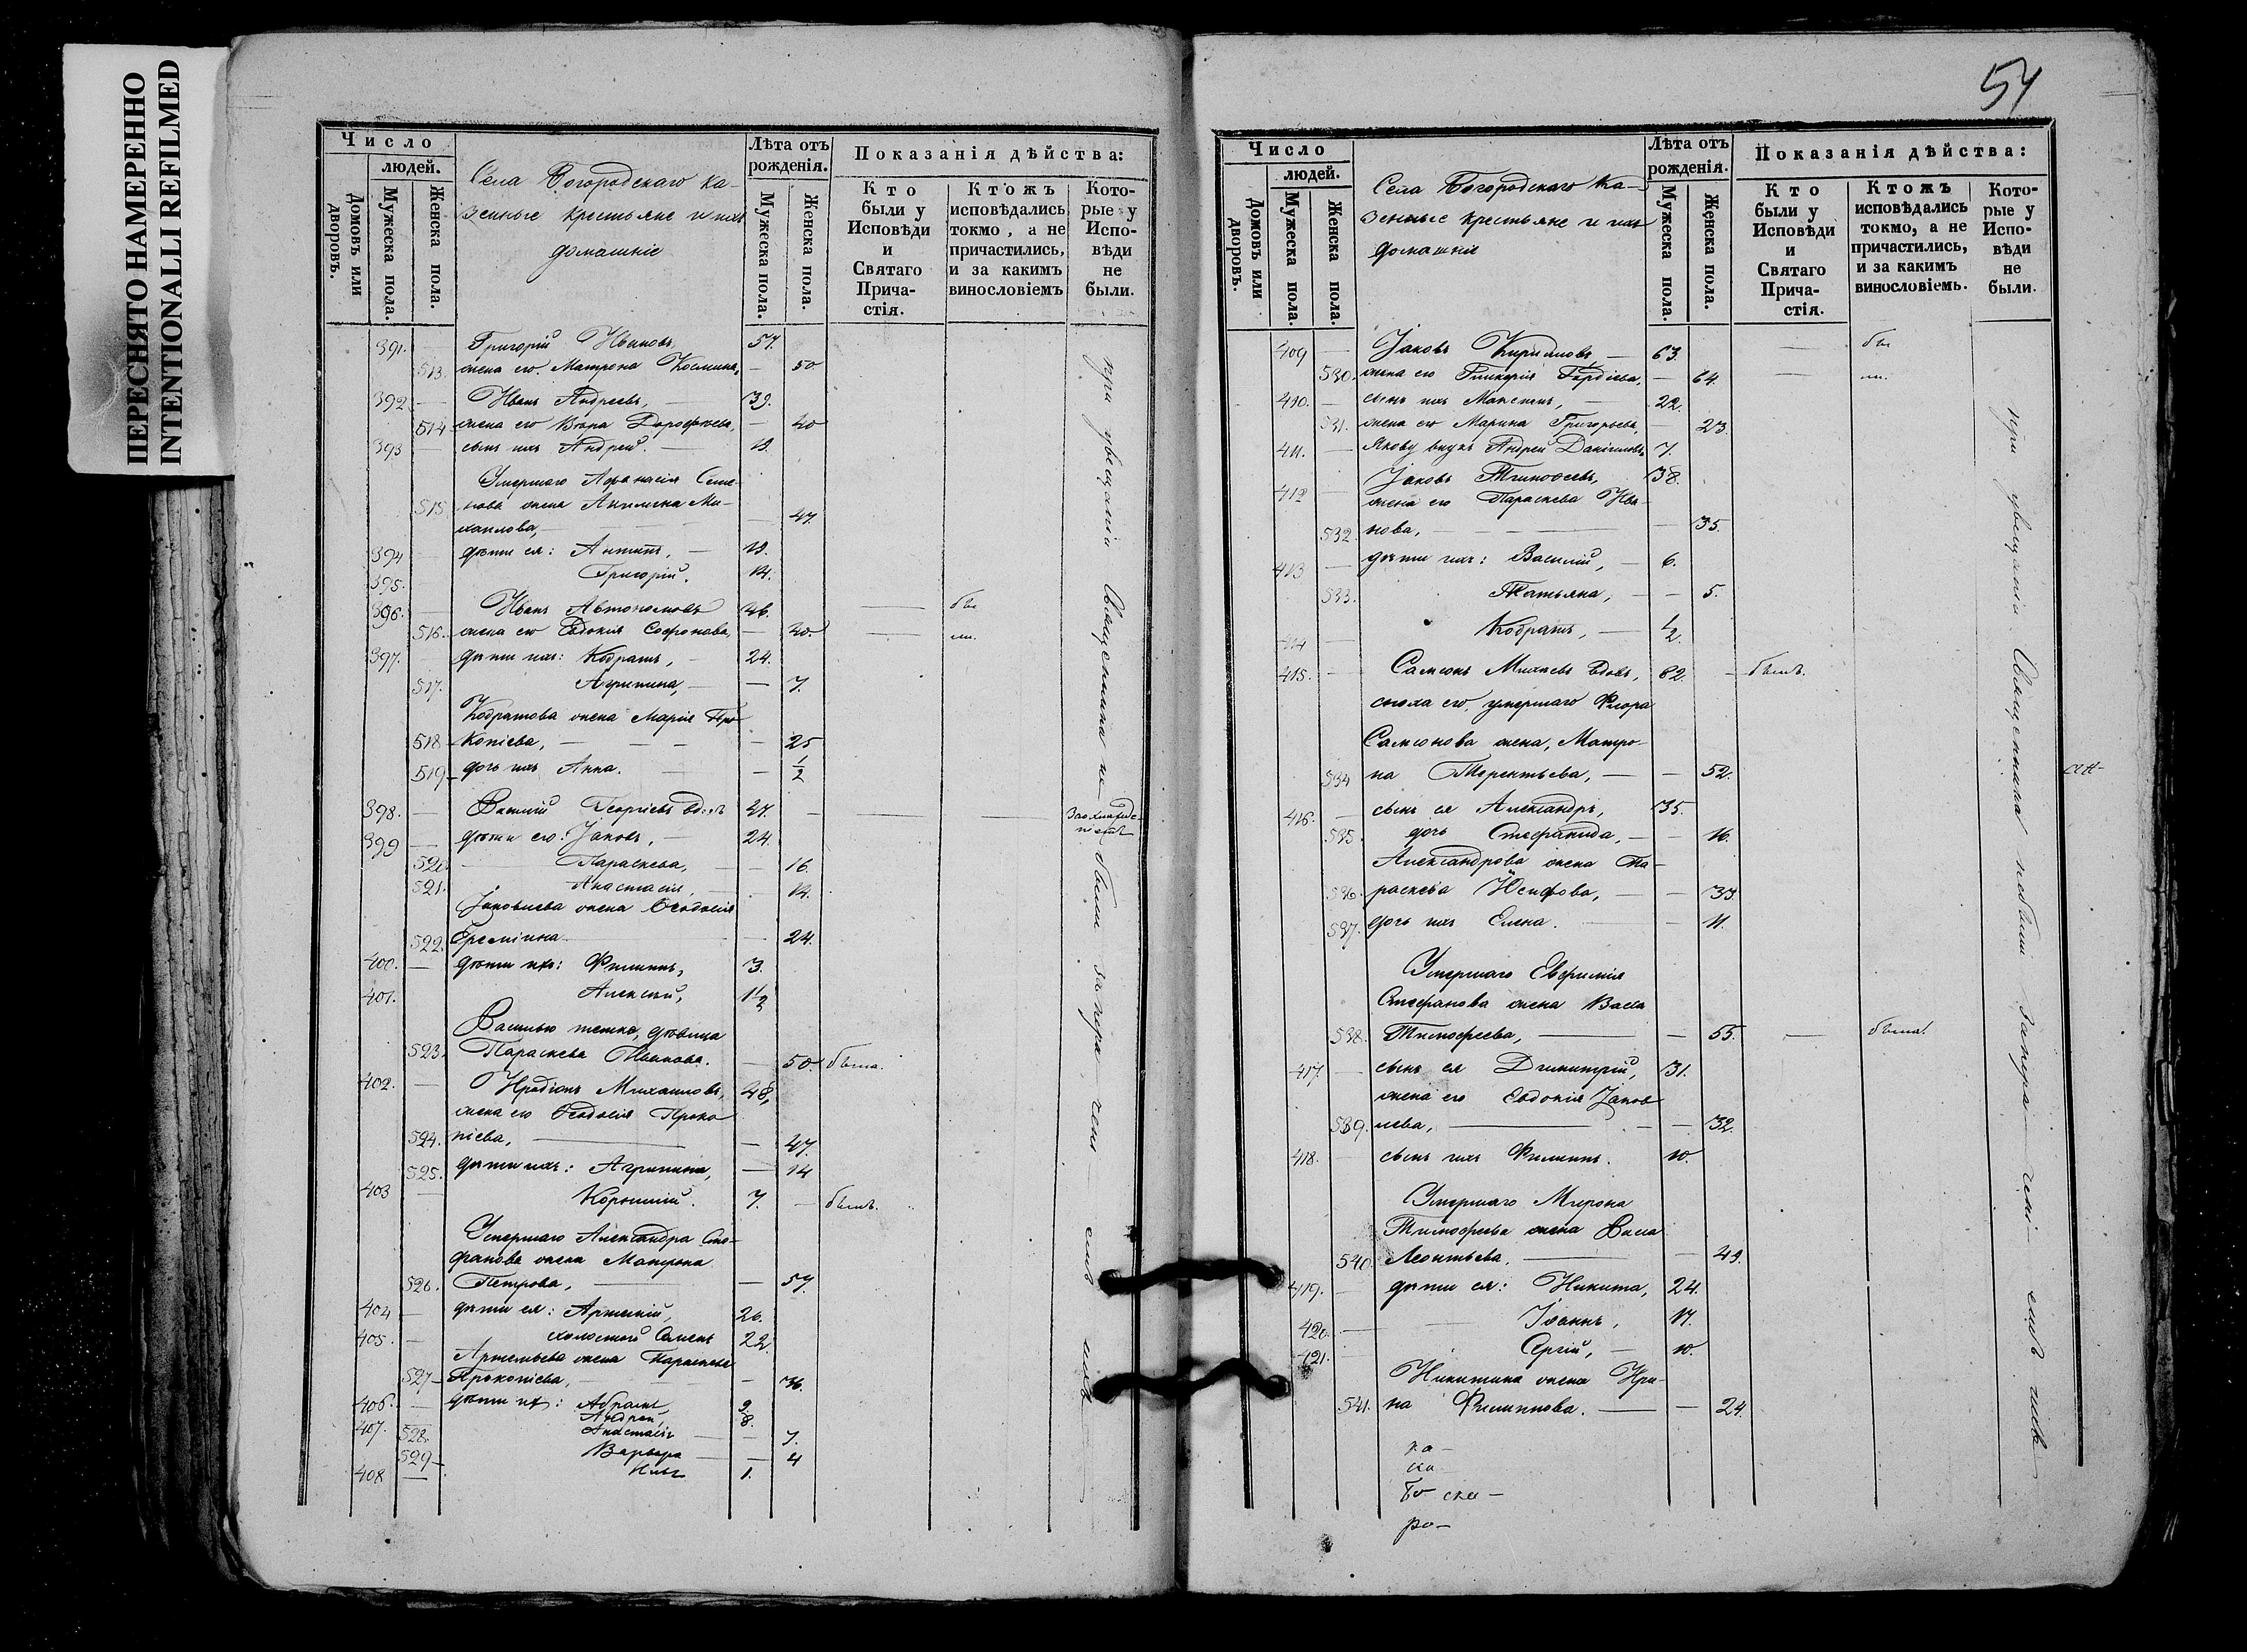 ПЕРЕСНЯТО НАМЕРЕННО
INTENTIONALLI REFILMED
Число
людей.
Домовъ или дворовъ.
Мужеска пола.
Женска пола.
Села Богородскаго ка-
зенные крестьяне и ихъ
домашніе
Лѣта отъ рожденія.
Мужеска пола.
Женска пола.
Показанія дѣйства:
Кто были у Исповѣди и Святаго Прича-стія.
Ктожъ исповѣдались токмо, а не причастились, и за какимъ винословіемъ
Кото-рые у Испо-вѣди не были.
391. — Григорій Ивановъ, 57.
513. жена его Матрона Космина, — 50
392 — Иванъ Андреевъ, — 39.
514 жена его Вѣра Дорофѣева, — 40
393 — сынъ ихъ Андрей. —
Умершаго Аѳанасія Семе-
515 нова жена Акилина Ми-
хаилова, — 47.
394 — дѣти ея: Антипъ, —
395. — Григорій. 14.
396. — Иванъ Автономовъ 46. — бы
516. жена его Евдокія Софонова, — 40. — ли.
397. — дѣти ихъ: Кодратъ, — 24.
517. Агрипина, — — 7.
Кодратова жена Марія Про-
518 копіева, — — 25
519 дочь ихъ Анна. — 1/2
398. — Василій Георгіевъ вдовъ 47. —
399 — дѣти его: Іаковъ, — 24.
520. Параскева, — 16.
521. Анастасія, — 14.
Іаковлева жена Ѳеодосія
522. Еремѣина — 24.
400. — дѣти ихъ: Филиппъ, 3.
401. Алексѣй, 1 1/2
Василью тетка, дѣвица
523. Параскева Иванова. — 50. была.
402. — Иродіонъ Михаиловъ, 48,
жена его Ѳеодосія Проко
524. піева, — — 47.
525. дѣти ихъ: Агрипина, — 14
403 — Корнилій. 7. — былъ.
Умершаго Александра Сте-
фанова жена Матрона
526. Петрова, — — 57.
404 — дѣти ея: Артемій, 26.
405. — холостой Семенъ 22.
Артемьева жена Параскева
527 Прокопіева, — — 36.
406. — дѣти ихъ: Абрамъ, 9
407. Андрей, 8.
528. Анастасія — 7.
529 Варвара — — 4
408 — Илья 1.
при увещаніи Священника не были запера чені емъ ихъ
54
Число
людей.
Домовъ или дворовъ.
Мужеска пола.
Женска пола.
Села Богородскаго ка-
зенные крестьяне и ихъ
домашніе
Лѣта отъ рожденія.
Мужеска пола.
Женска пола.
Показанія дѣйства:
Кто были у Исповѣди и Святаго Прича-стія.
Ктожъ исповѣдались токмо, а не причастились, и за какимъ винословіемъ.
Кото-рые у Испо-вѣди не были.
409 — Іаковъ Кирилловъ, — 63. — бы
530. жена его Гликерія Гордіева, — 64. — ли.
410. — сынъ ихъ Максимъ, — 22.
531. жена его Марина Григорьева, — 23.
411. — Якову внукъ Андрей Даніиловъ 7.
412 — Іаковъ Тимоѳеевъ, 38.
жена его Параскева Ива-
532. нова, — — 35.
413 — дѣти ихъ: Василій, — 6.
533. Татьяна, — — 5.
414 — Кодратъ, — 1/2.
415. — Самсонъ Михѣевъ вдовъ, 82. — былъ.
сноха его, умершаго Флора
Самсонова жена, Матро-
534 на Терентьева, — — 52.
416. — сынъ ея Александръ, 35.
535. дочь Стефанида, — — 16.
Александрова жена Па-
536. раскева Іосифова, — — 33.
537. дочь ихъ Елена. — — 11.
Умершаго Евфимія
Стефанова жена Васса
538. Тимофеева, — — 55. — была.
417. — сынъ ея Димитрій, 31.
жена его Евдокія Іаков
539. лева, — — 32.
418. — сынъ ихъ Филиппъ. 10.
Умершаго Мирона
Тимофеева жена Васса
540. Леонтьева. — — 49.
419. — дѣти ея: Никита, 24.
420. — Іоаннъ, 17.
421. — Сергій, — 10.
Никитина жена Ири-
541. на Филиппова. — — 24.
ка-
ро-
при увещаніи Священника небыли запера чені емъ ихъ